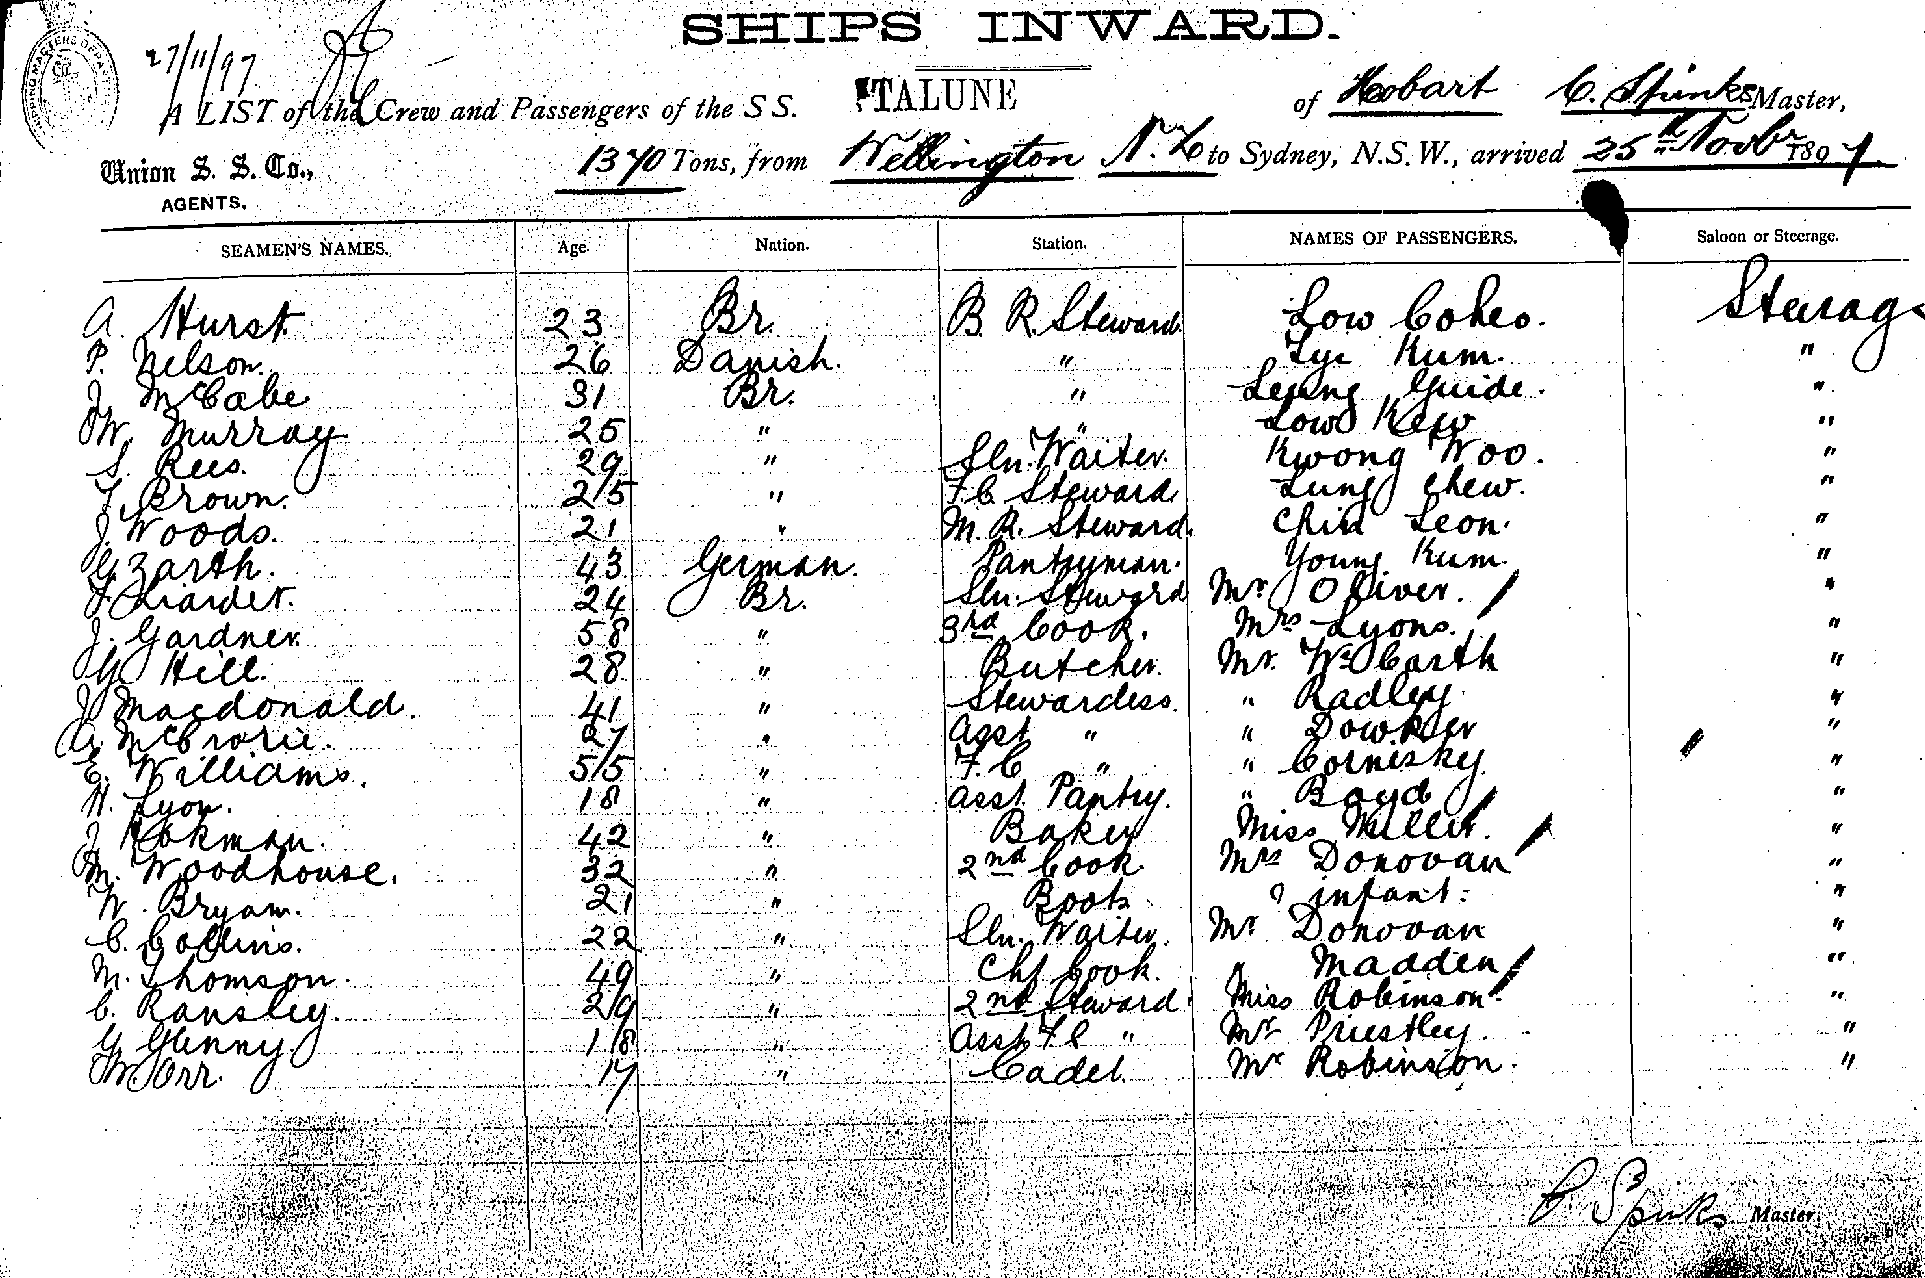 SHIPS INWARD.
27/11/97
A LIST of the Crew and Passengers of the S S. TALUNE of Hobart C. Spinks Master,
Union S. S. Co., AGENTS. 1370 Tons, from Wellington N.Z to Sydney, N.S.W., arrived 25th Novbr 1897.
SEAMEN'S NAMES. Age. Nation. Station. NAMES OF PASSENGERS. Saloon or Steerage.
A. Hurst 23 Br. B. R Steward Low Steerage
P. Nelson. 26 Danish. " Kum. "
J McCabe 31 Br. " Leung Guide. "
W. Murray 25 " " Low Kew "
S. Rees. 29 " Sln. Waiter. Kwong Woo. "
T. Brown. 25 " F C Steward Lung Chew. "
J Woods. 21 " M. R. Steward. Chin Leon. "
G Zarth. 43 German. Pantryman. Young Kum. "
24 Br. Sln. Steward Mr Oliver. "
J. Gardner. 58 " 3rd Cook. Mrs Lyons. "
G. Hill. 28 " Butcher. Mr. McCarth "
J Macdonald. 41 " Stewardess. " Radley "
A. McCrorie. 27 " Asst " " Dowker "
E. Williams. 55 " F. C " " Cornisky "
H. Lyon. 18 " Asst Pantry. " Boyd "
J 42 " Baker Miss Miller. "
M. Woodhouse. 32 " 2nd Cook Mrs Donovan "
W. Bryam. 21 " Boots & infant. "
C. Collins. 22 " Sln. Waiter. Mr Donovan "
M. Thomson. 49 " Chf Cook. " Madden "
C. Ransley. 29 " 2nd Steward Miss Robinson. "
G Glenny 18 " Asst F C " Mr Priestley. "
W Orr. 17 " Cadet. Mr Robinson. "
C. Spinks Master.